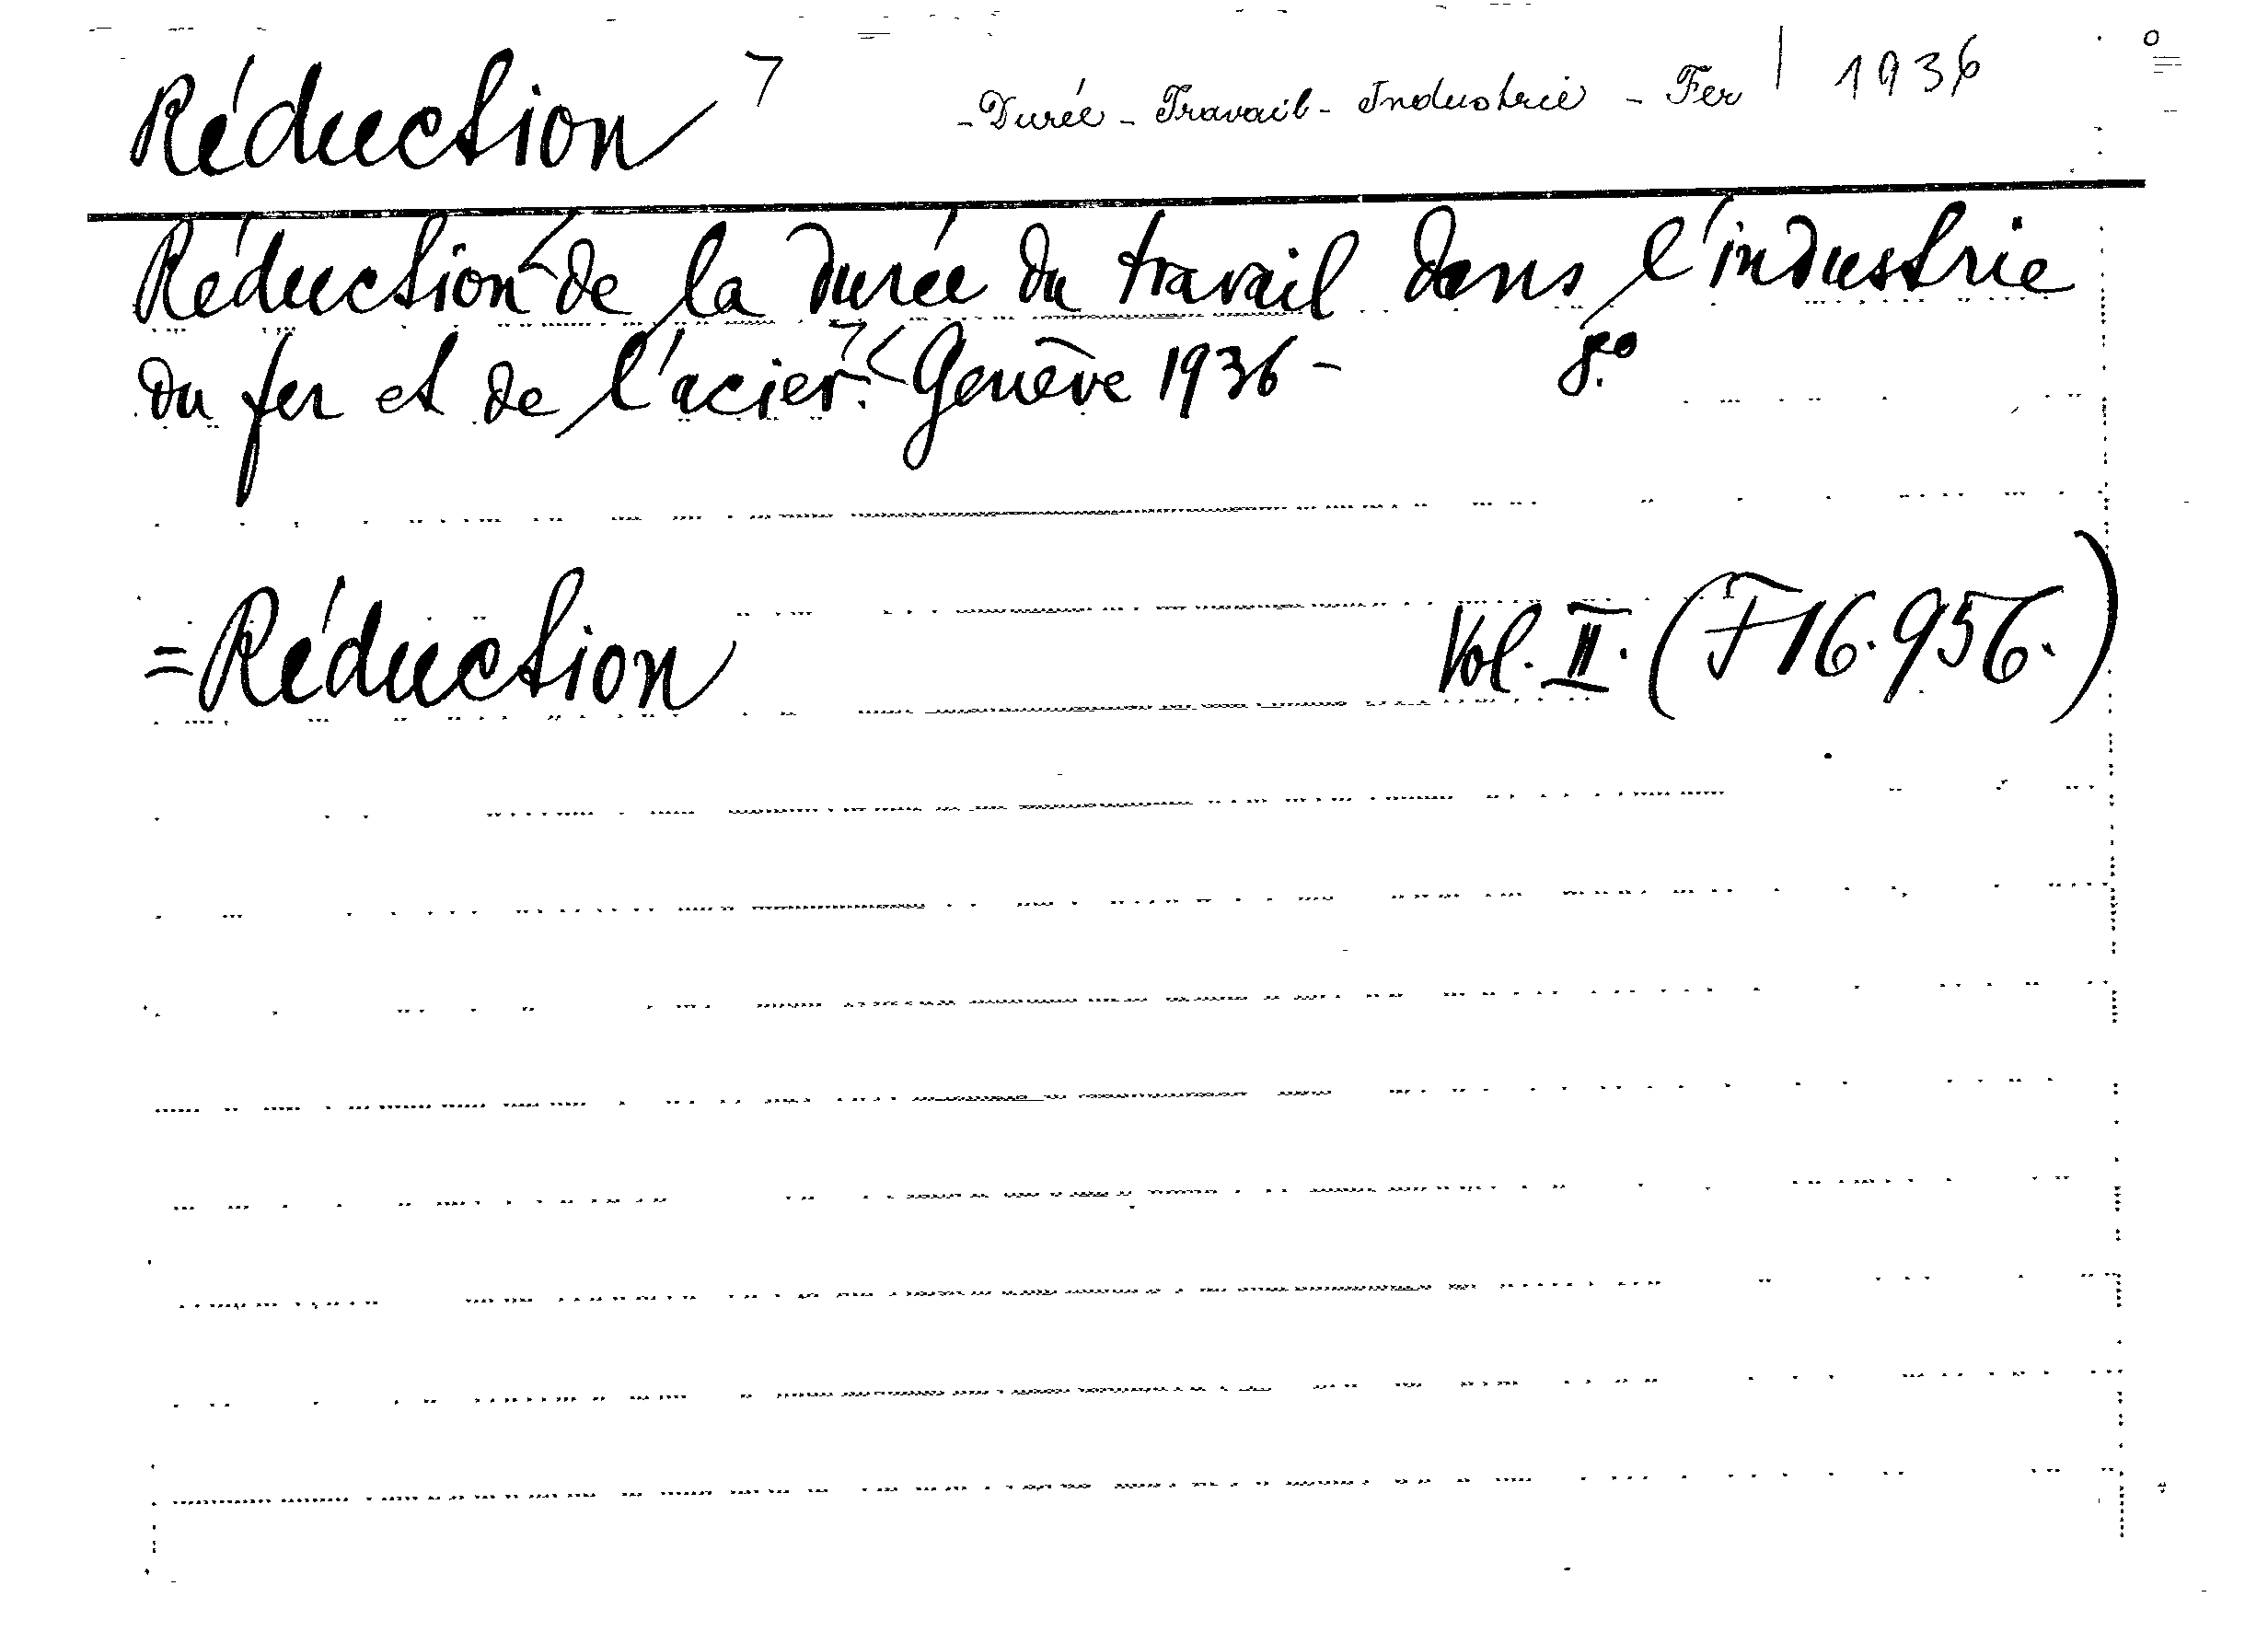 Réduction - Durée - Travail - Industrie - Fer | 1936
Réduction de la durée du travail dans l'industrie
du fer et de l'acier. Genève 1936 - 8.º
= Réduction Vol. II. (F 16.956.)